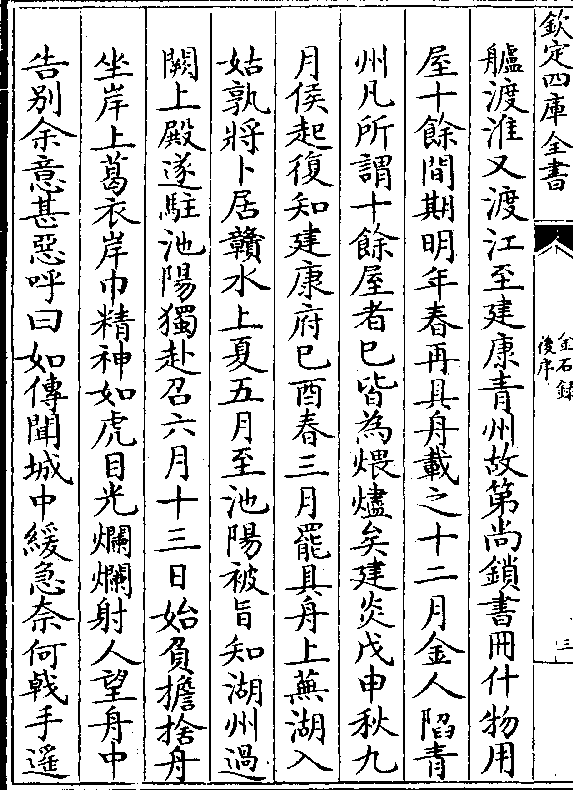 欽定四庫全書
金石録
後序
三
艫渡淮又渡江至建康青州故第尚鎖書冊什物用
屋十餘間期明年春再具舟載之十二月金人陷青
州凡所謂十餘屋者巳皆為煨燼矣建炎戊申秋九
月侯起復知建康府巳酉春三月罷具舟上蕪湖入
姑孰將卜居贛水上夏五月至池陽被旨知湖州過
闕上殿遂駐池陽獨赴召六月十三日始負擔捨舟
坐岸上葛衣岸巾精神如虎目光爛爛射人望舟中
告别余意甚惡呼曰如傳聞城中緩急奈何戟手遥